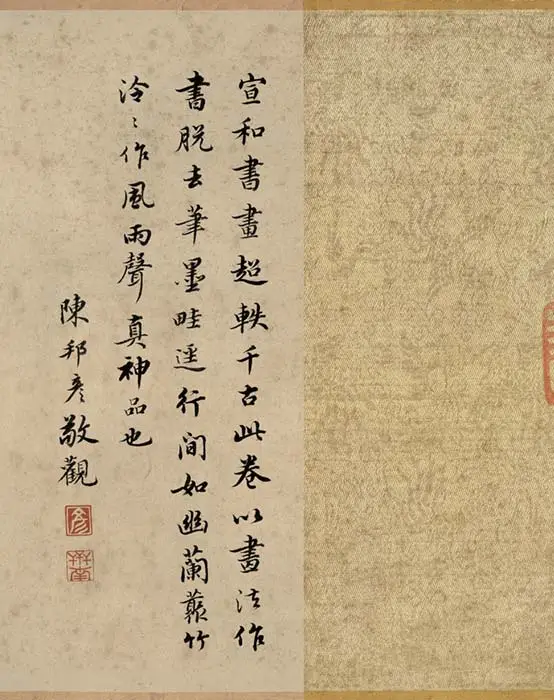 宣和書畫超軼千古此卷以畫法作
書脱去筆墨畦逕行間如幽蘭叢竹
泠〻作風雨聲真神品也
陳邦彥敬觀